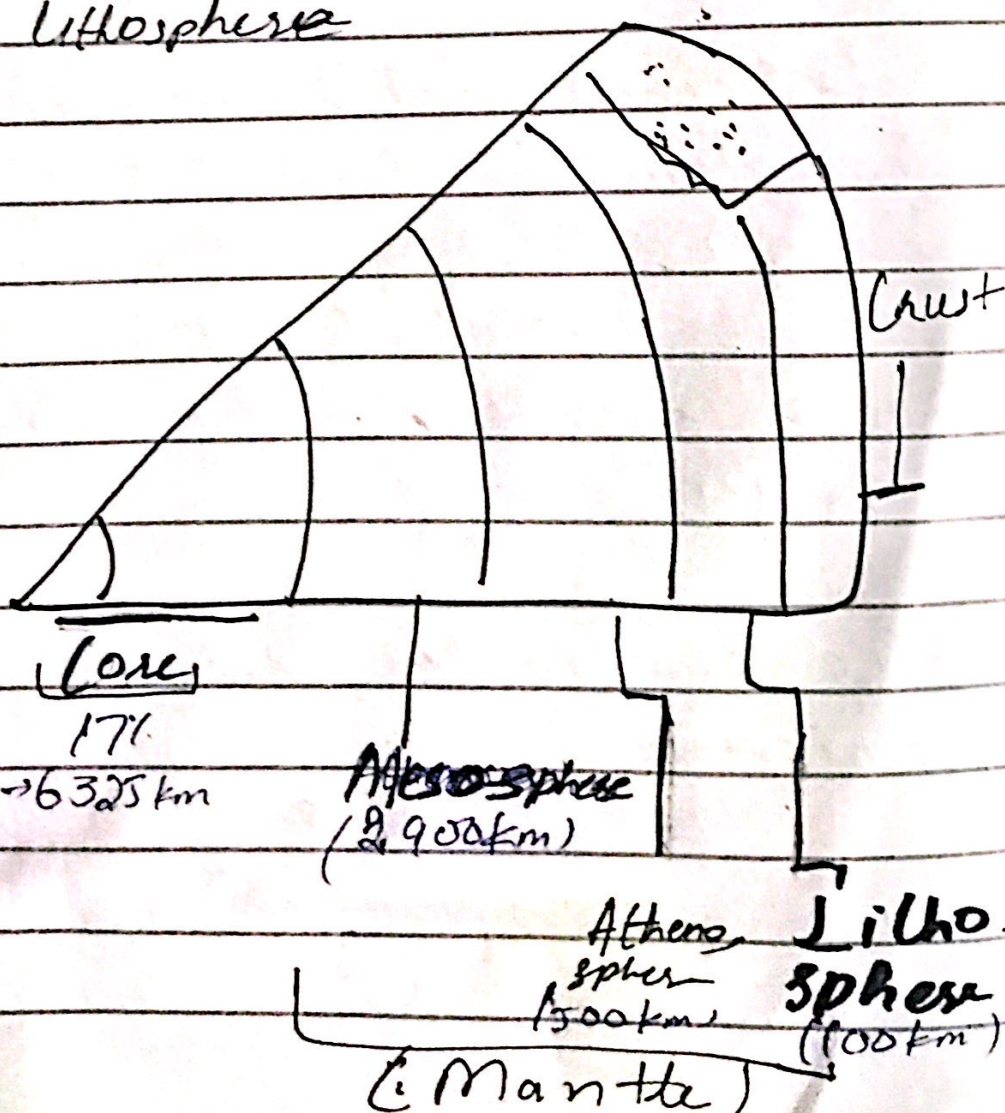 Lithosphere
Crust
Core
17%
→6325 km
Mesosphere
(2900km)
Atheno
spher
(500km)
Litho
sphere
(100km)
(Mantle)